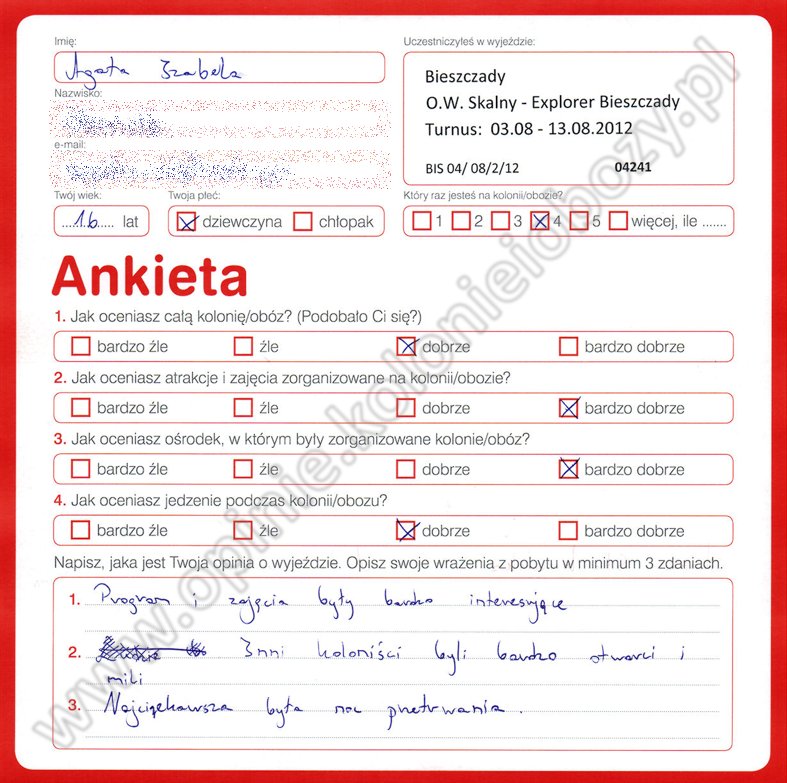 Imię:
Agata Izabela
Uczestniczyłeś w wyjeździe:
Bieszczady
O.W. Skalny - Explorer Bieszczady
Turnus: 03.08 - 13.08.2012
BIS 04/ 08/2/12 04241
Nazwisko:
e-mail:
Twój wiek:
16 lat
Twoja płeć:
dziewczyna chłopak
Który raz jesteś na kolonii/obozie?
1 2 3 4 5 więcej, ile .......
Ankieta
1. Jak oceniasz całą kolonię/obóz? (Podobało Ci się?)
bardzo źle źle dobrze bardzo dobrze
2. Jak oceniasz atrakcje i zajęcia zorganizowane na kolonii/obozie?
bardzo źle źle dobrze bardzo dobrze
3. Jak oceniasz ośrodek, w którym były zorganizowane kolonie/obóz?
bardzo źle źle dobrze bardzo dobrze
4. Jak oceniasz jedzenie podczas kolonii/obozu?
bardzo źle źle dobrze bardzo dobrze
Napisz, jaka jest Twoja opinia o wyjeździe. Opisz swoje wrażenia z pobytu w minimum 3 zdaniach.
1. Program i zajęcia były bardzo interesujące
2. Inni koloniści byli bardzo otwarci i
mili
3. Najciekawsza była noc przetrwania.
www.opinie.kolonieiobozy.pl